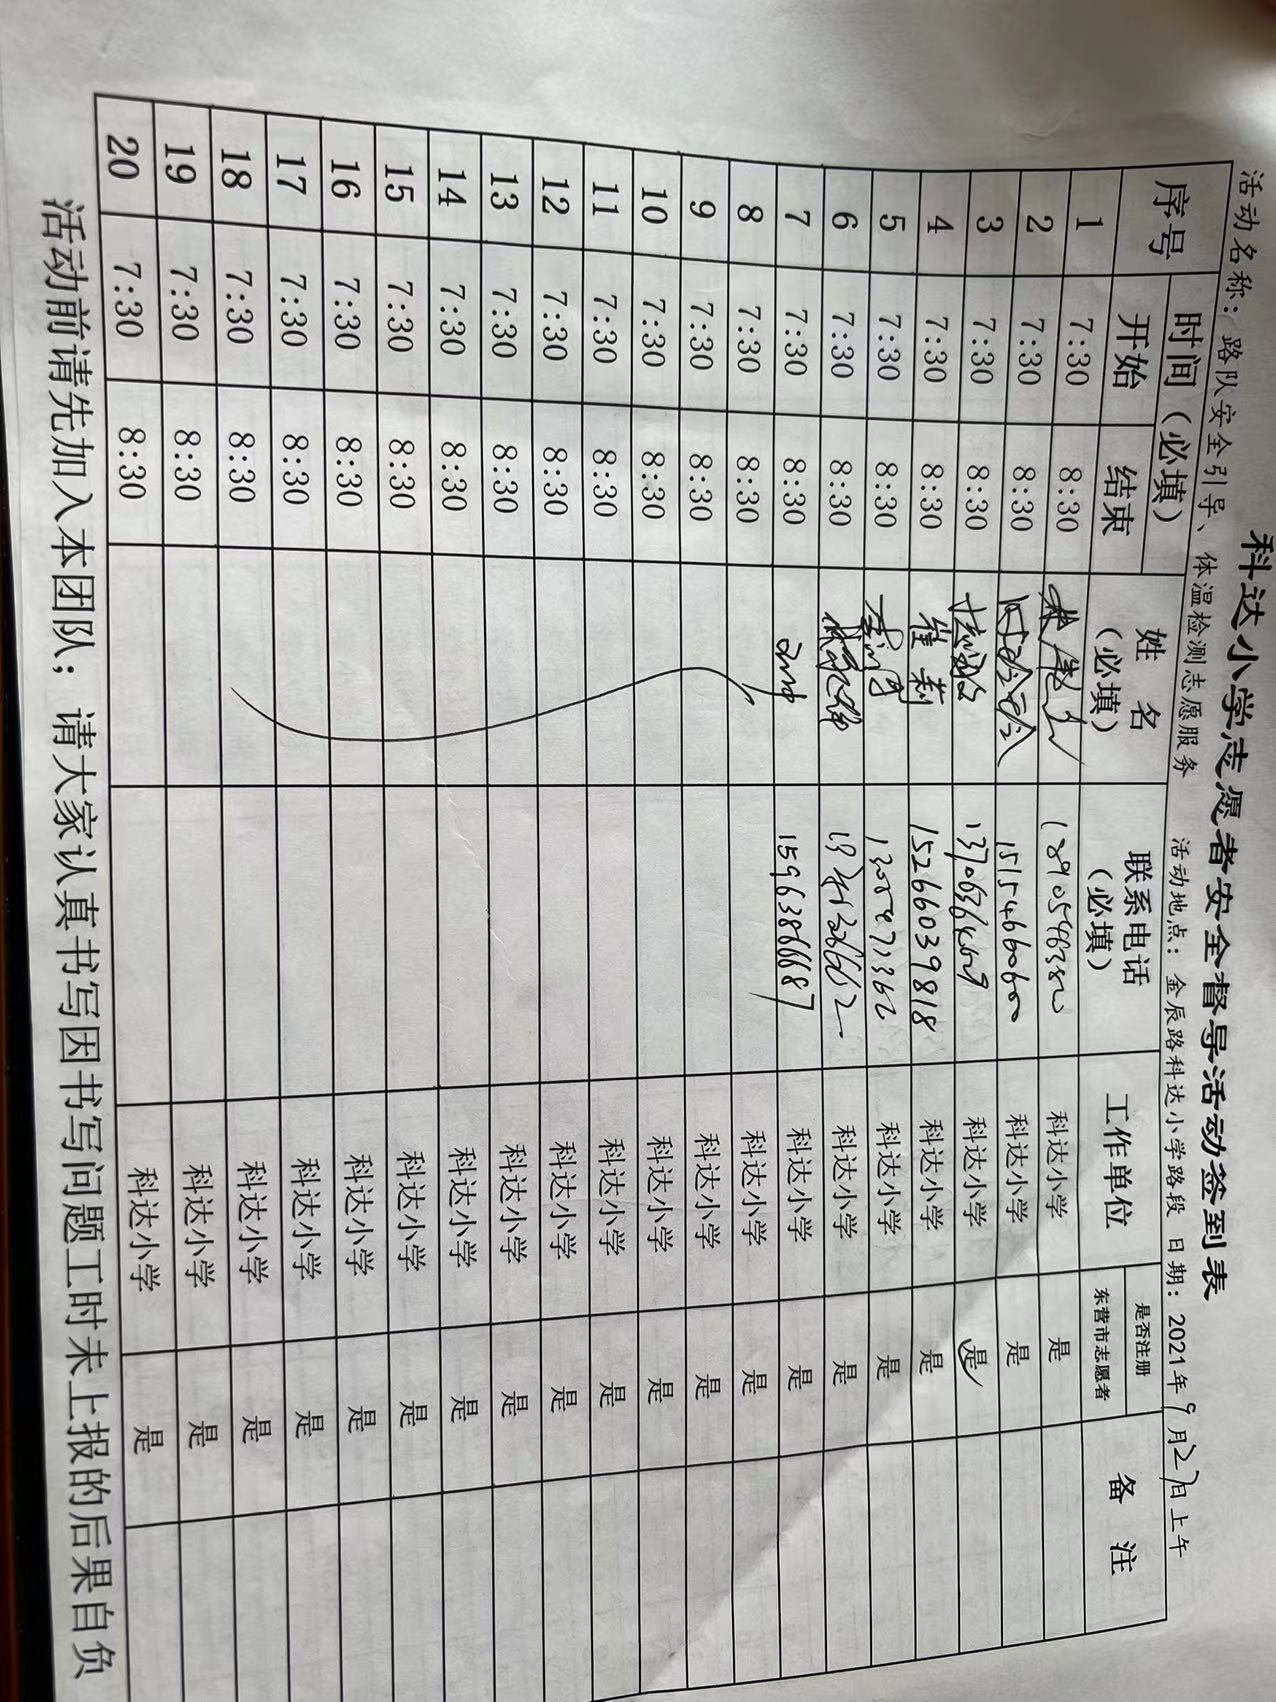 科达小学志愿者安全督导活动签到表
活动名称：路队安全引导、体温检测志愿服务 活动地点：金辰路科达小学路段 日期：2021年9月27日上午
序号 时间（必填） 姓 名（必填） 联系电话（必填） 工作单位 是否注册东营市志愿者 备 注
开始 结束
1 7:30 8:30 科达小学 是
2 7:30 8:30 15154660600 科达小学 是
3 7:30 8:30 科达小学 是
4 7:30 8:30 崔莉 15266039818 科达小学 是
5 7:30 8:30 科达小学 是
6 7:30 8:30 科达小学 是
7 7:30 8:30 15963866687 科达小学 是
8 7:30 8:30 科达小学 是
9 7:30 8:30 科达小学 是
10 7:30 8:30 科达小学 是
11 7:30 8:30 科达小学 是
12 7:30 8:30 科达小学 是
13 7:30 8:30 科达小学 是
14 7:30 8:30 科达小学 是
15 7:30 8:30 科达小学 是
16 7:30 8:30 科达小学 是
17 7:30 8:30 科达小学 是
18 7:30 8:30 科达小学 是
19 7:30 8:30 科达小学 是
20 7:30 8:30 科达小学 是
活动前请先加入本团队；请大家认真书写因书写问题工时未上报的后果自负